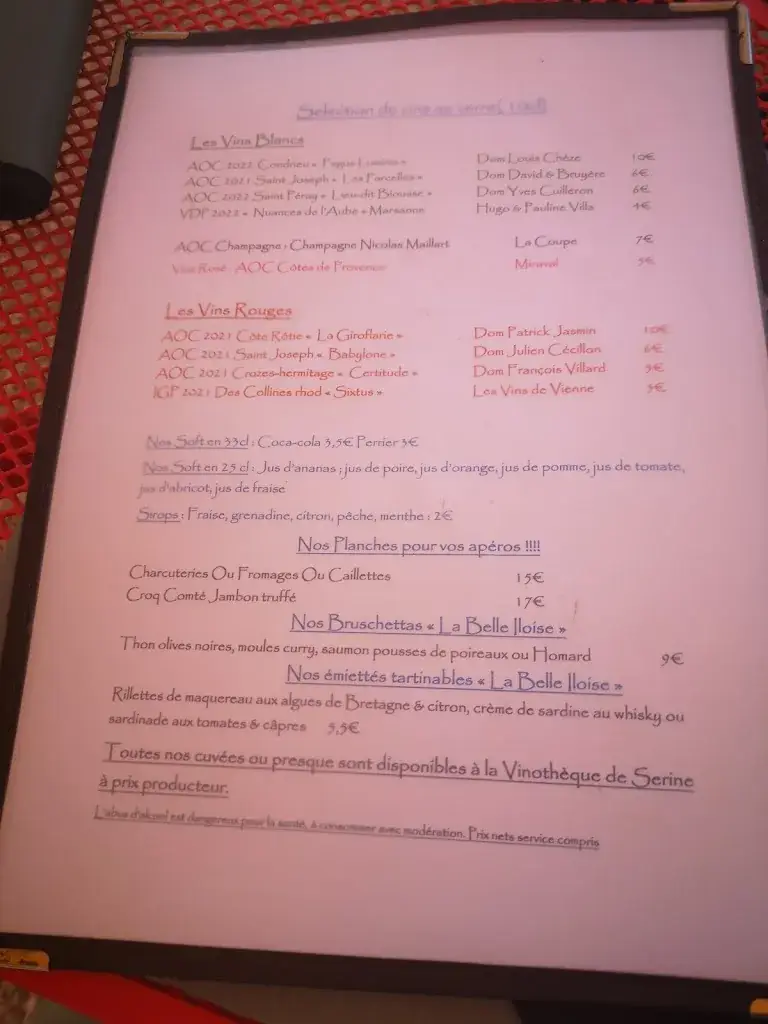 Sélection de vins au verre
Les Vins Blancs
AOC 2022 Condrieu « » Dom Louis Chèze 10€
AOC 2021 Saint Joseph « Les Parcelles » Dom David & Bruyère 6€
AOC 2022 Saint Péray « Lieu-dit Biousse » Dom Yves Cuilleron 6€
VDP 2022 « Nuances de l'Aube » Marsanne Hugo & Pauline Villa 4€
AOC Champagne : Champagne Nicolas Maillart La Coupe 7€
Vins Rosé AOC Côtes de Provence Miraval 5€
Les Vins Rouges
AOC 2021 Côte Rôtie « La Giroflarie » Dom Patrick Jasmin 10€
AOC 2021 Saint Joseph « Babylone » Dom Julien Cécillon 6€
AOC 2021 Crozes-hermitage « Certitude » Dom François Villard 5€
IGP 2021 Des Collines rhod « Sixtus » Les Vins de Vienne 5€
Nos Soft en 33cl : Coca-cola 3,5€ Perrier 3€
Nos Soft en 25 cl : Jus d'ananas ; jus de poire, jus d'orange, jus de pomme, jus de tomate,
jus d'abricot, jus de fraise
Sirops : Fraise, grenadine, citron, pêche, menthe : 2€
Nos Planches pour vos apéros !!!!
Charcuteries Ou Fromages Ou Caillettes 15€
Croq Comté Jambon truffé 17€
Nos Bruschettas « La Belle Iloise »
Thon olives noires, moules curry, saumon pousses de poireaux ou Homard 9€
Nos émiettés tartinables « La Belle Iloise »
Rillettes de maquereau aux algues de Bretagne & citron, crème de sardine au whisky ou
sardinade aux tomates & câpres 5,5€
Toutes nos cuvées ou presque sont disponibles à la Vinothèque de Serine
à prix producteur.
L'abus d'alcool est dangereux pour la santé, à consommer avec modération. Prix nets service compris